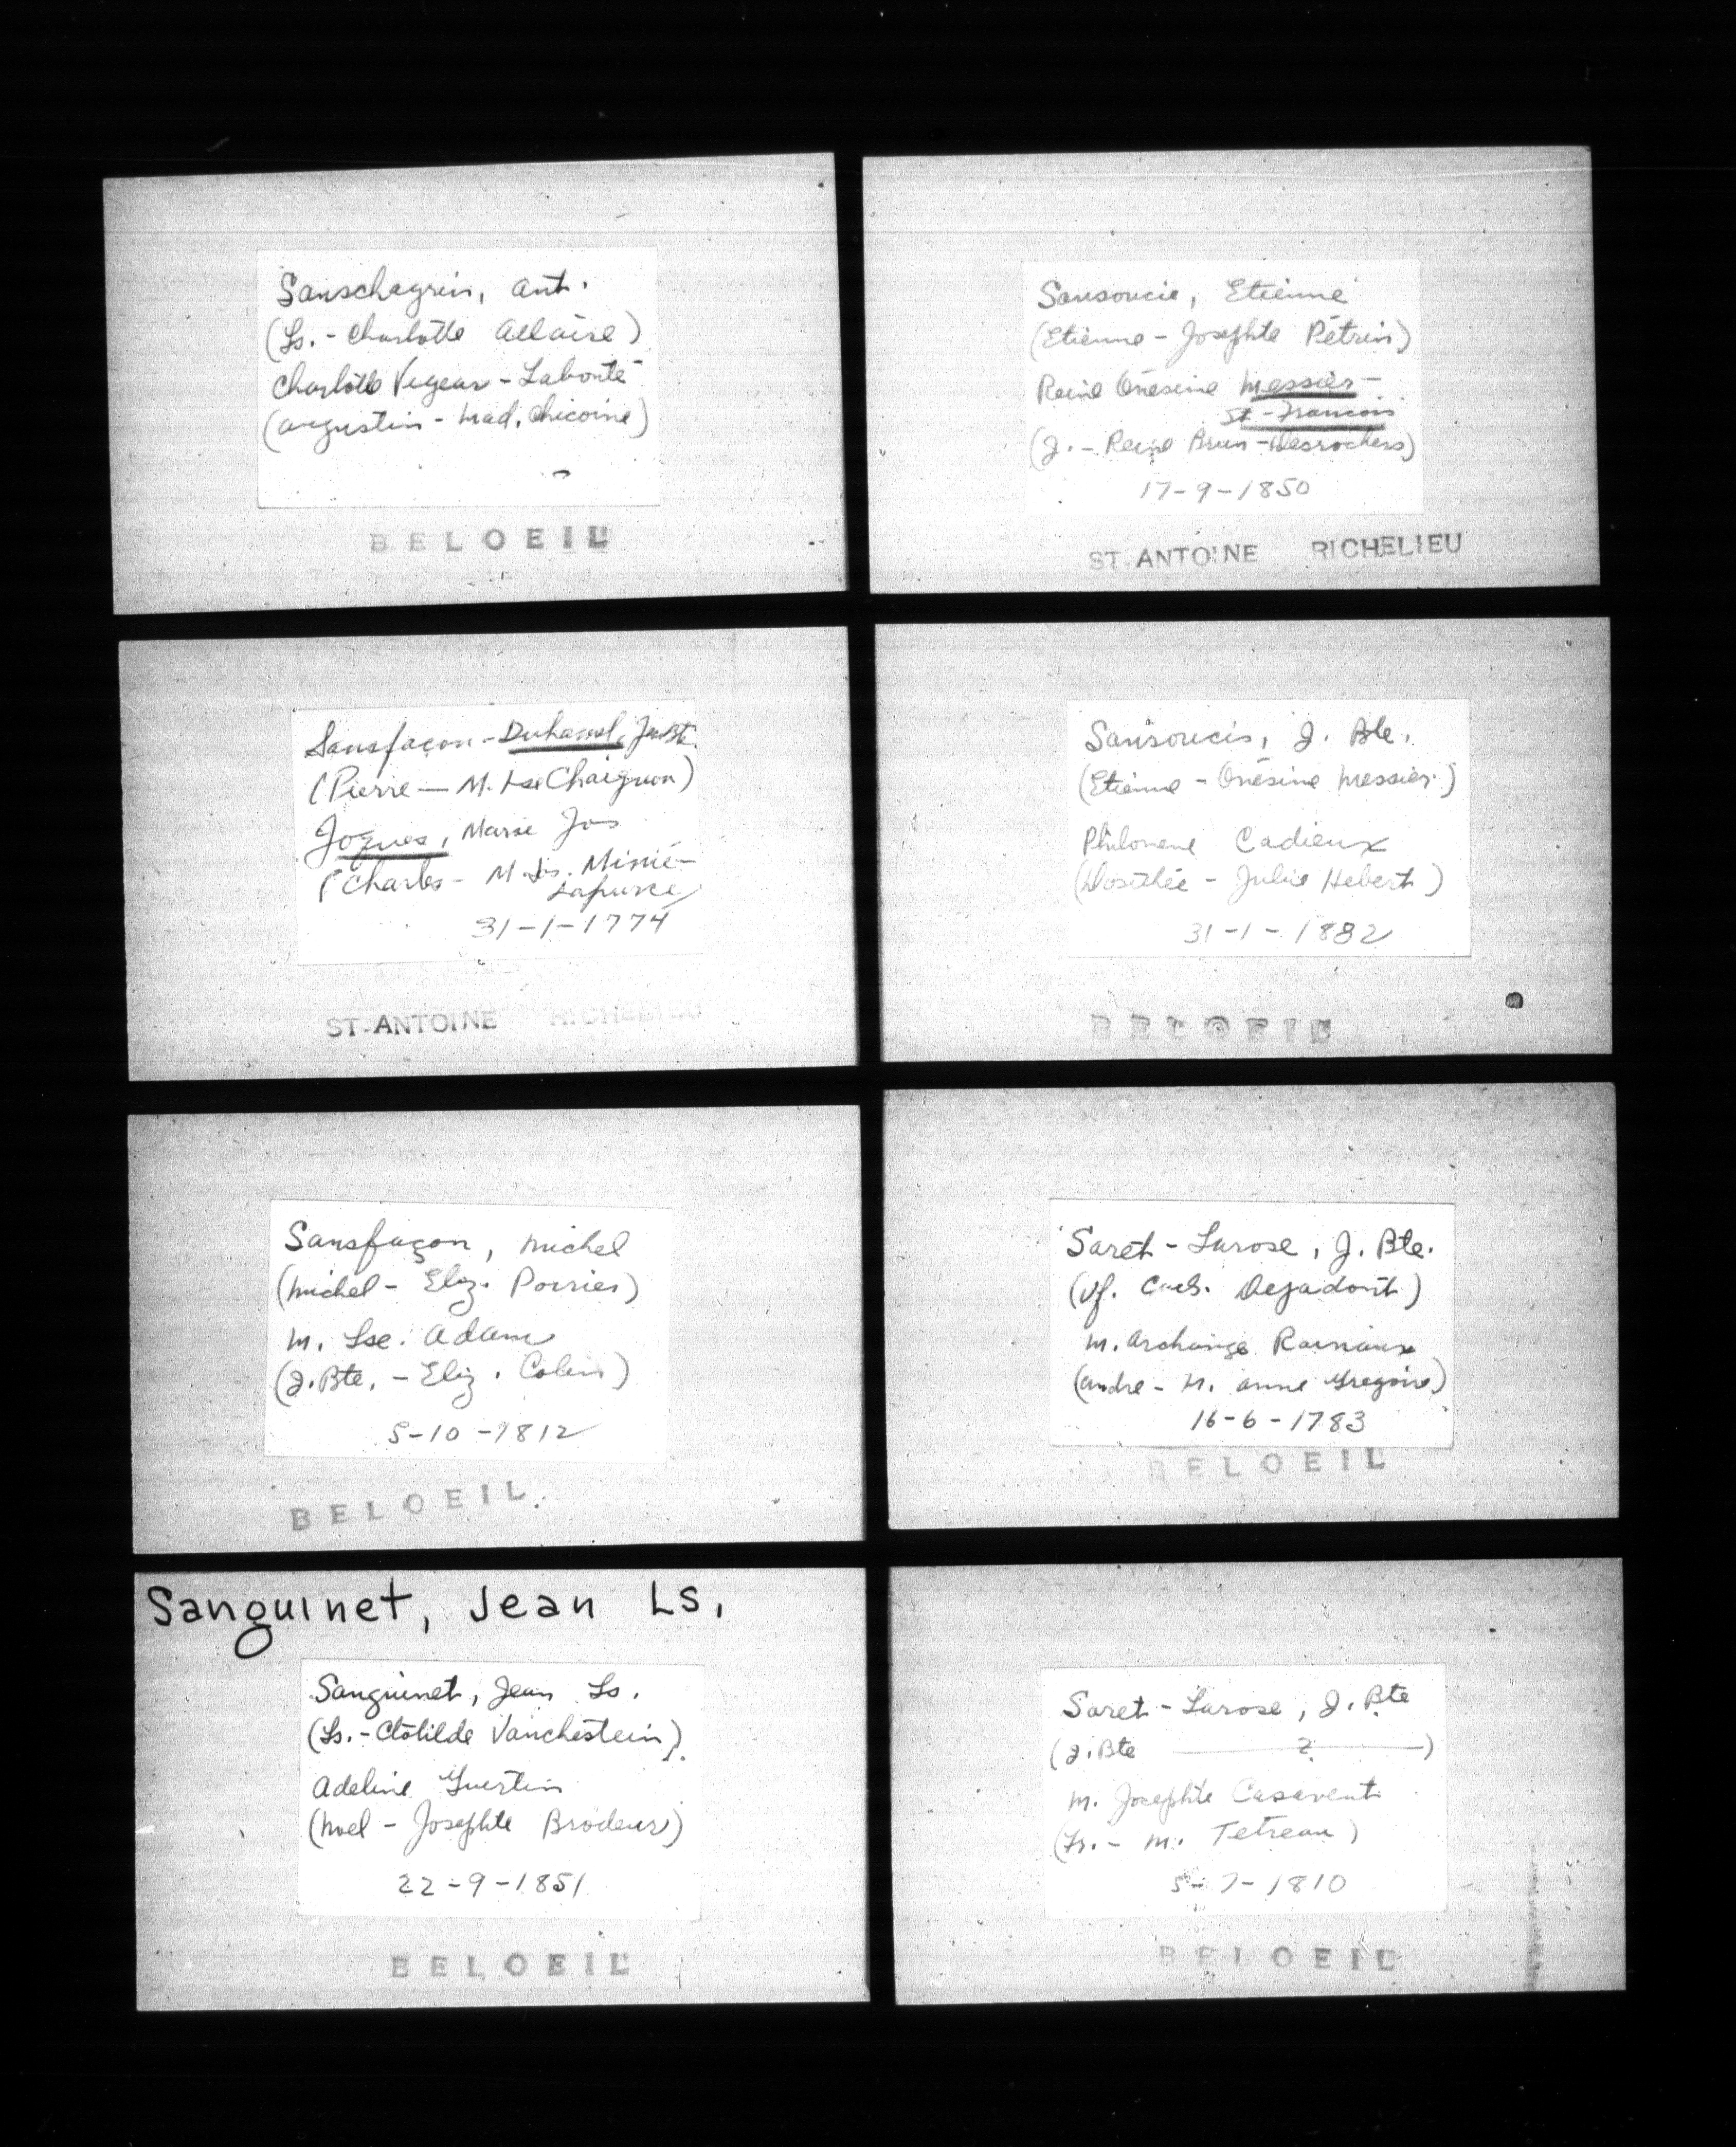 Sanschagrin, Ant.
(Ls. - Charlotte Allaire)
Charlotte Vegear - Labonté
(Augustin - Mad. Chicoine)
BELOEIL
Sansfaçon - Duhamel, J. Bte
(Pierre — M. Lse Chaignon)
Joques, Marie Jos
(Charles - M. Ls. Minié -
Lafurce)
31-1-1774
ST-ANTOINE RICHELIEU
Sansfaçon, Michel
(Michel - Eliz. Poirier)
M. Lse. Adam
(J. Bte. - Eliz. Colin)
5-10-1812
BELOEIL
Sanguinet, Jean Ls,
Sanguinet, Jean Ls.
(Ls. - Clotilde Vanchestein)
Adeline Guertin
(Noel - Josephte Brodeur)
22-9-1851
BELOEIL
Sansoucie, Etienne
(Etienne - Josephte Pétrin)
Reine Onésine Messier -
St-Francois
(J. - Reine Brun - Desrochers)
17-9-1850
ST-ANTOINE RICHELIEU
Sansoucis, J. Bte.
(Etienne - Onésine Messier)
Philomene Cadieux
(Dosithée - Julie Hebert)
31-1-1882
BELOEIL
Saret - Larose, J. Bte.
(Vf. Cath. Dejadont)
M. Archange
(Andre - M. Anne Gregoire)
16-6-1783
BELOEIL
Saret - Larose, J. Bte
(J. Bte — ? —)
M. Josephte Casavent
(Ls. - M. Tetreau)
5-7-1810
BELOEIL